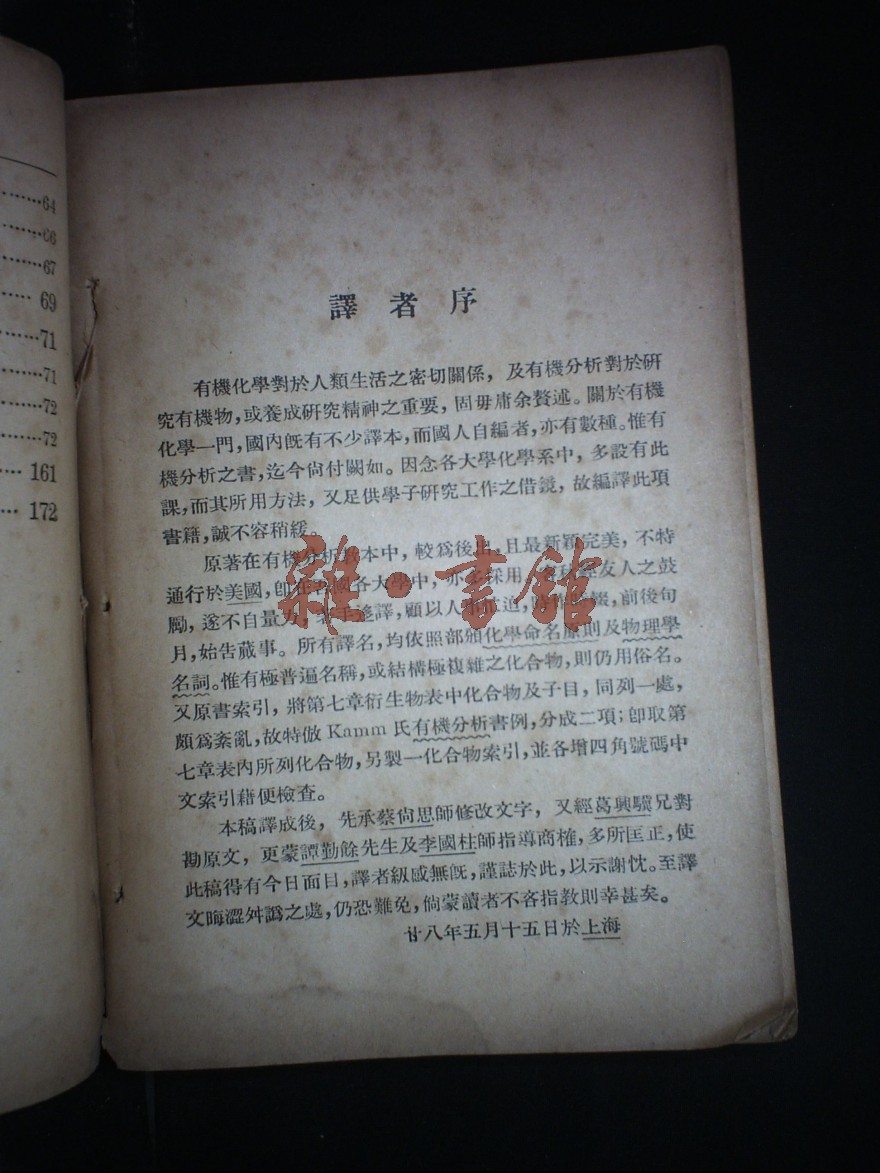 64
66
67
69
71
71
72
72
161
172
譯者序
有機化學對於人類生活之密切關係，及有機分析對於硏
究有機物，或養成硏究精神之重要，固毋庸余贅述。關於有機
化學一門，國內旣有不少譯本，而國人自編者，亦有數種。惟有
機分析之書，迄今尙付闕如。因念各大學化學系中，多設有此
課，而其所用方法，又足供學子硏究工作之借鏡，故編譯此項
書籍，誠不容稍緩。
原著在有機分析敎本中，較爲後出，且最新穎完美，不特
通行於美國，卽在各國各大學中，亦多採用。友人之鼓
勵，遂不自量力，著手迻譯，顧以人事，前後句
月，始告蕆事。所有譯名，均依照部頒化學命名原則及物理學
名詞。惟有極普遍名稱，或結構極複雜之化合物，則仍用俗名。
又原書索引，將第七章衍生物表中化合物及子目，同列一處，
頗爲紊亂，故特倣 Kamm 氏有機分析書例，分成二項；卽取第
七章表內所列化合物，另製一化合物索引，並各增四角號碼中
文索引藉便檢查。
本稿譯成後，先承蔡尙思師修改文字，又經葛興驥兄對
勘原文，更蒙譚勤餘先生及李國柱師指導商榷，多所匡正，使
此稿得有今日面目，譯者級感無旣，謹誌於此，以示謝忱。至譯
文晦澀舛譌之處，仍恐難免，倘蒙讀者不吝指敎則幸甚矣。
廿八年五月十五日於上海
雜·書館